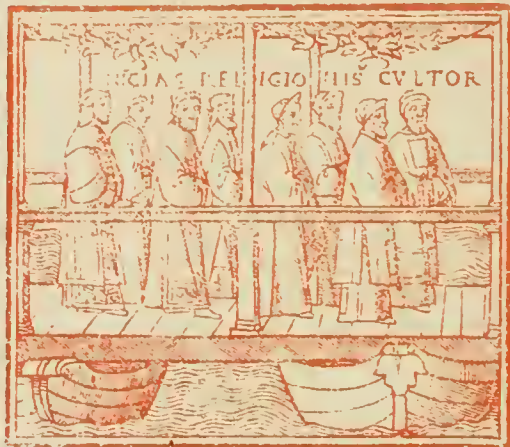 RELIGIONIS CVLTOR